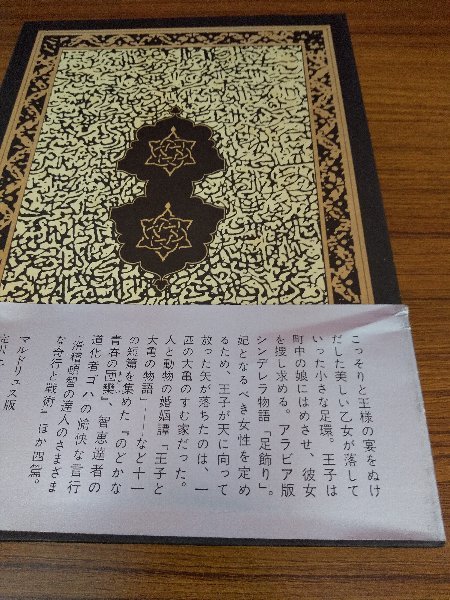 こっそりと王様の宴をぬけ
だした美しい乙女が落して
いった小さな足環。王子は
町中の娘にはめさせ、彼女
を捜し求める。アラビア版
シンデレラ物語「足飾り」。
妃となるべき女性を定め
るため、王子が天に向って
放った矢が落ちたのは、一
匹の大亀のすむ家だった。
人と動物の婚姻譚「王子と
大亀の物語」――など十一
の短篇を集めた『のどかな
青春の団欒』。智恵達者の
道化者ゴハの愉快な言行
滑稽頓智の達人のさまざま
な奇行と戦術』ほか四篇。
マルドリュス版